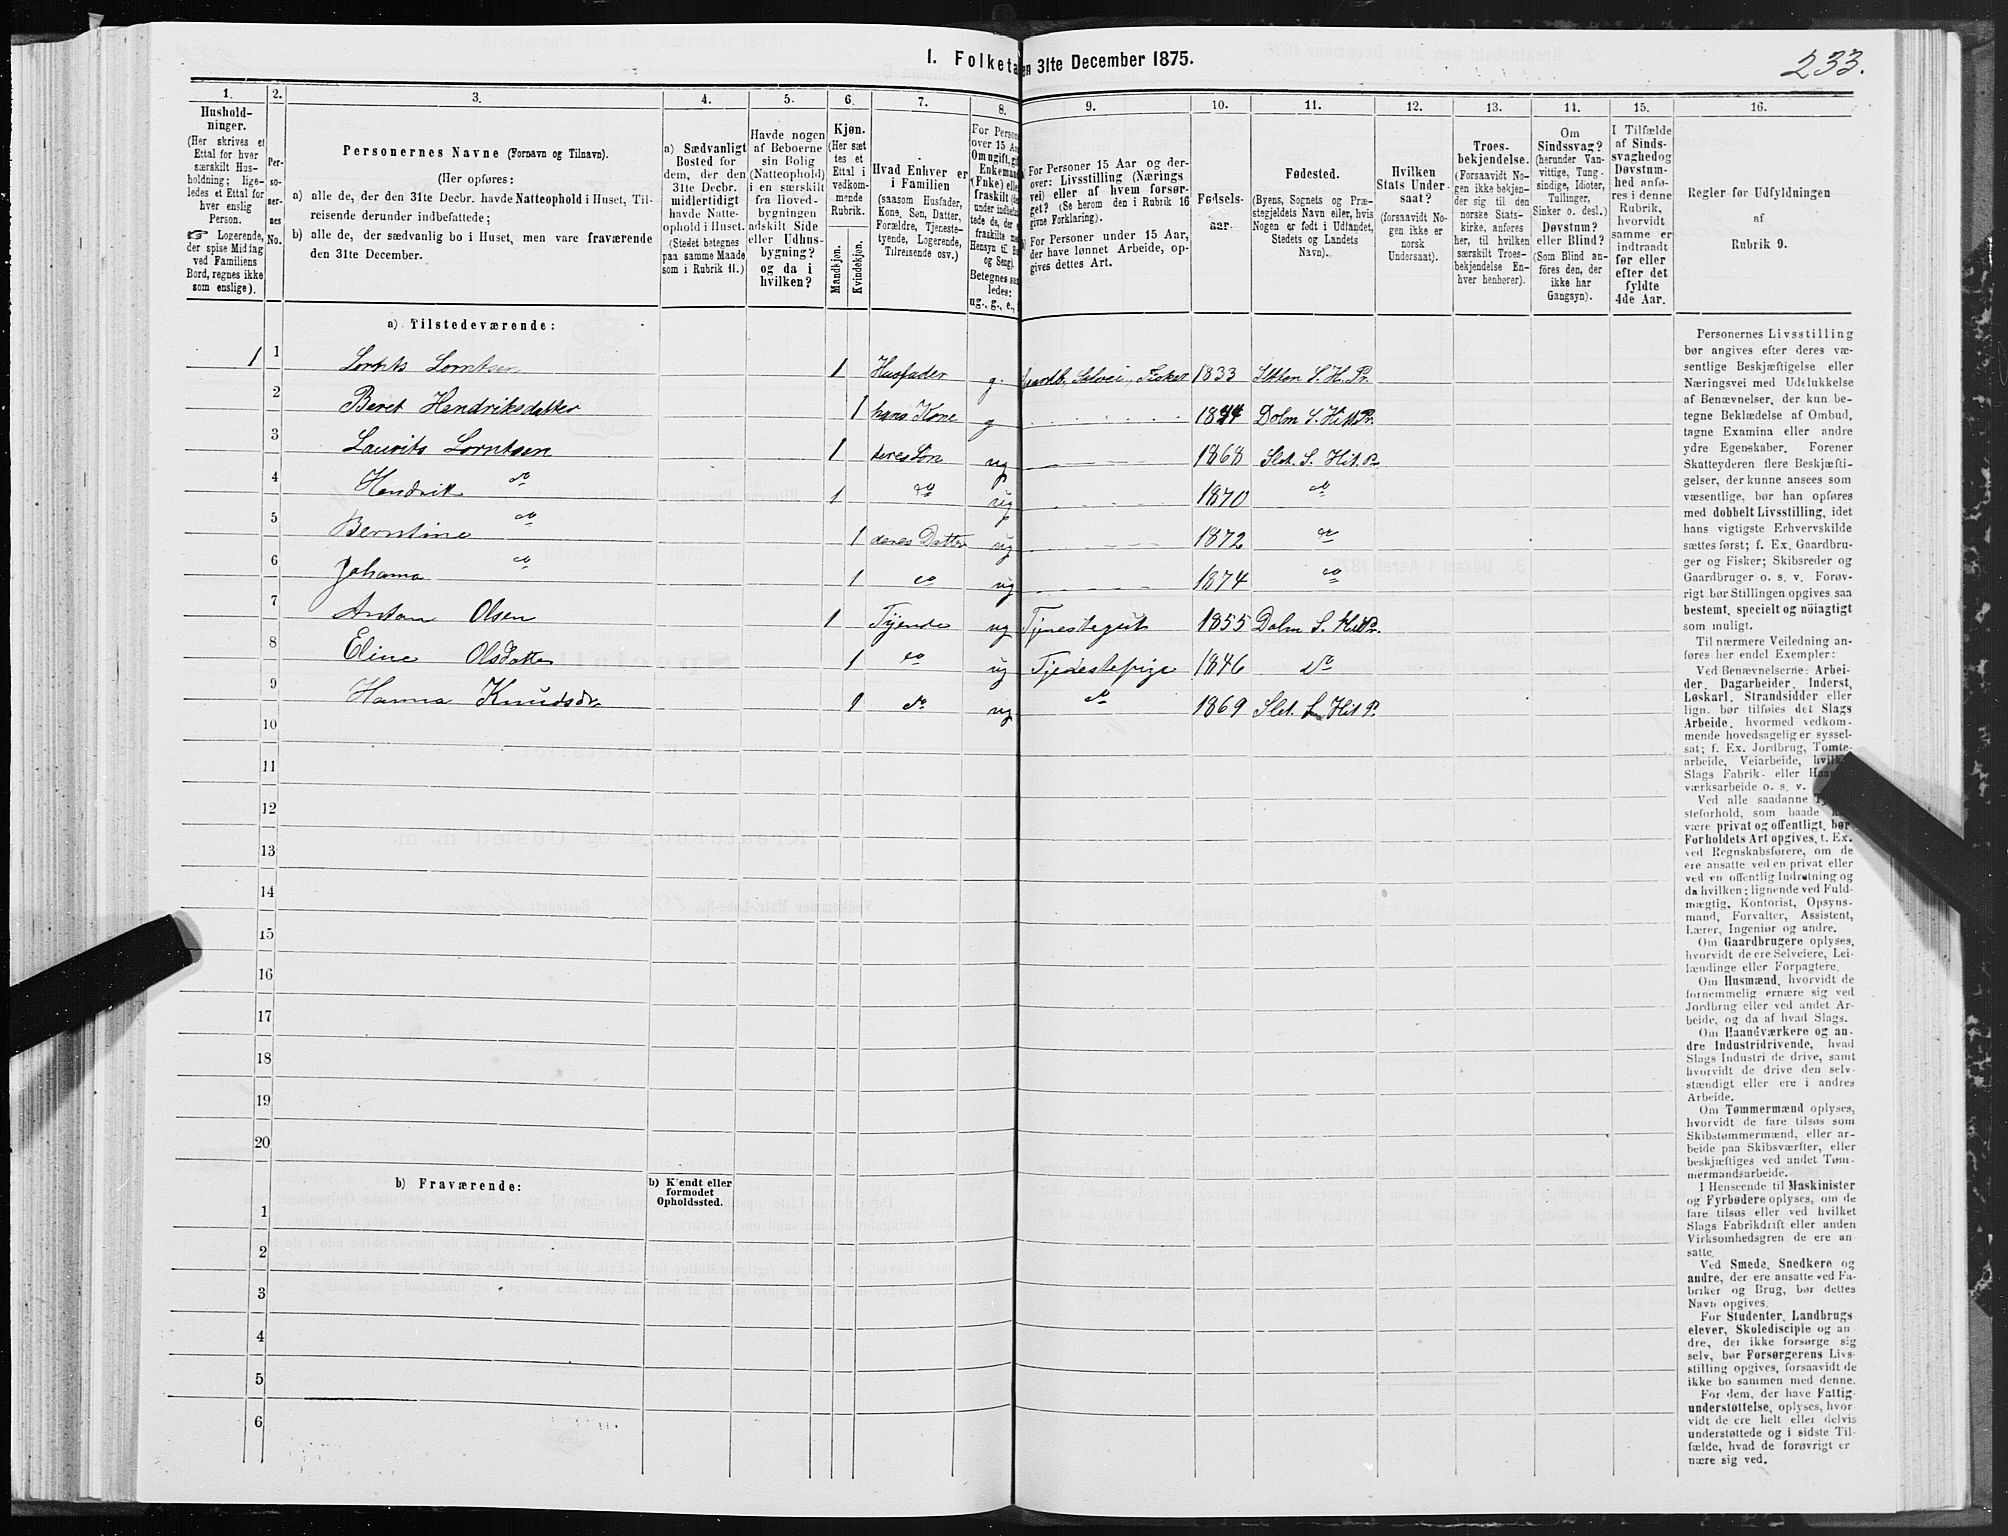 I. Folketa en 31te December 1875.
233.
1. 2. 3. 4. 5. 6. 7. 8. 9. 10. 11. 12. 13. 14. 15. 16.
Hushold-
ninger.
(Her skrives et
Ettal for hver
særskilt Hus-
holdning; lige-
ledes et Ettal for
hver enslig
Person.
☞ Logerende,
der spise Middag
ved Familiens
Bord, regnes ikke
som enslige).
Per-
so-
ner-
nes
No.
Personernes Navne (Fornavn og Tilnavn).
(Her opføres:
a) alle de, der den 31te Decbr. havde Natteophold i Huset, Til-
reisende derunder indbefattede;
b) alle de, der sædvanlig bo i Huset, men vare fraværende
den 31te December.
a) Sædvanligt
Bosted for
dem, der den
31te Decbr.
midlertidigt
havde Natte-
ophold i Huset.
(Stedet betegnes
paa samme Maade
som i Rubrik 11.)
Havde nogen
af Beboerne
sin Bolig
(Natteophold)
i en særskilt
fra Hoved-
bygningen
adskilt Side
eller Udhus-
bygning?
og da i
hvilken?
Kjøn.
(Her sæt
tes et
Ettal i
vedkom-
mende
Rubrik.
Mandkjøn.
Kvindekjøn.
Hvad Enhver er
i Familien
(saasom Husfader,
Kone, Søn, Datter,
Forældre, Tjeneste-
tyende, Logerende,
Tilreisende osv.)
For Person
over 15 Aa
Om ugift, gif
Enkemand
(Enke) elle
fraskilt
Betegnes saa
ledes:
ug., g., e.,
For Personer 15 Aar og der-
over: Livsstilling (Nærings
vei) eller af hvem forsør-
get? (Se herom den i Rubrik 16
givne Forklaring).
For Personer under 15 Aar,
der have lønnet Arbeide, op-
gives dettes Art.
Fødsels-
aar.
Fødested.
(Byens, Sognets og Præ-
stegjeldets Navn eller, hvis
Nogen er født i Udlandet,
Stedets og Landets
Navn).
Hvilken
Stats Under-
saat?
(forsaavidt No-
gen ikke er
norsk
Undersaat).
Troes-
bekjendelse.
(Forsaavidt No-
gen ikke bekjen-
der sig til den
norske Stats-
kirke, anføres
her, til hvilken
særskilt Troes-
bekjendelse En-
hver henhører).
Om
Sindssvag?
(herunder Van-
vittige, Tung-
sindige, Idioter,
Tullinger,
Sinker o. desl.)
Døvstum?
eller Blind?
(Som Blind an-
føres den, der
ikke har
Gangsyn).
I Tilfælde
af Sinds-
svaghed og
Døvstum-
hed anfø-
res i denne
Rubrik,
hvorvidt
samme er
indtraadt
før eller
efter det
fyldte
4de Aar.
Regler for Udfyldningen
af
Rubrik 9.
a) Tilstedeværende:
1 1 Lornts Lorntsen 1 Husfader g. Gaardb. Selvei, Fisker 1833 Sletten S. H. Pr.
2 Beret Hendriksdatter 1 hans Kone g 1844 Dolm S. Hit Pr.
3 Laurits Lorntsen 1 deres Søn ug 1868 Slet. S. Hit. P.
4 Hendrik do 1 do ug 1870 do
5 Berntine do 1 deres Datter ug 1872 do
6 Johanna do 1 do ug 1874 do
7 Anton Olsen 1 Tyende ug Tjenestegut 1855 Dolm S. Hit Pr.
8 Eline Olsdatter 1 do ug Tjedestepige 1846 do
9 Hanna Knudsdr. 1 do ug do 1869 Slet. S. Hit P.
10
11
12
13
14
15
16
17
18
19
20
b) Fraværende:
b) Kjendt eller
formodet
Opholdssted.
1
2
3
4
5
6
Personernes Livsstilling
bør angives efter deres væ-
sentlige Beskjæftigelse eller
Næringsvei med Udelukkelse
af Benævnelser, der kun be-
tegne Beklædelse af Ombud,
tagne Examina eller andre
ydre Egenskaber. Forener
Skatteyderen flere Beskjæfti-
gelser, der kunne ansees som
væsentlige, bør han opføres
med dobbelt Livsstilling, idet
hans vigtigste Erhvervskilde
sættes først; f. Ex. Gaardbru-
ger og Fisker; Skibsreder og
Gaardbruger o. s. v. Forøv-
rigt bør Stillingen opgives saa
bestemt, specielt og nöiagtigt
som muligt.
Til nærmere Veiledning an-
føres her endel Exempler:
Ved Benævnelserne: Arbei-
der, Dagarbeider, Inderst,
Løskarl, Strandsidder eller
lign. bør tilføies det Slags
Arbeide, hvormed vedkom-
mende hovedsagelig er syssel-
sat; f. Ex. Jordbrug, Tomte-
arbeide, Veiarbeide, hvilke
Slags Fabrik- eller Haand
værksarbeide o. s. v.
Ved alle saadanne
steforhold, som baade
være privat og offentligt, bør
Forholdets Art opgives, t. Ex.
ved Regnskabsførere, om de
ere ansatte ved en privat eller
ved en offentlig Indretning og
da hvilken; lignende ved Fuld-
mægtig, Kontorist, Opsyns-
mand, Forvalter, Assistent,
Lærer, Ingeniør og andre.
Om Gaardbrugere oplyses,
hvorvidt de ere Selveiere, Lei-
lændinge eller Forpagtere.
Om Husmænd, hvorvidt de
fornemmelig ernære sig ved
Jordbrug eller ved andet Ar-
beide, og da af hvad Slags.
Om Haandværkere og an-
dre Industridrivende, hvad
Slags Industri de drive, samt
hvorvidt de drive den selv-
stændigt eller ere i andres
Arbeide.
Om Tømmermænd oplyses,
hvorvidt de fare tilsøs som
Skibstømmermænd, eller ar-
beide paa Skibsværfter, eller
beskjæftiges ved andet Tøm-
mermandsarbeide.
I Henseende til Maskinister
og Fyrbødere oplyses, om de
fare tilsøs eller ved hvilket
Slags Fabrikdrift eller anden
Virksomhedsgren de ere an-
satte.
Ved Smede, Snedkere og
andre, der ere ansatte ved Fa-
briker og Brug, bør dettes
Navn opgives.
For Studenter, Landbrugs
elever, Skoledisciple og an
dre, der ikke forsørge sig
selv, bør Forsørgerens Livs-
stilling opgives, forsaavidt de
ikke bo sammen med denne.
For dem, der have Fattig-
understøttelse, oplyses, hvor
vidt de ere helt eller delvis
understøttede og i sidste Til-
fælde, hvad de forøvrigt er
nære sig ved.